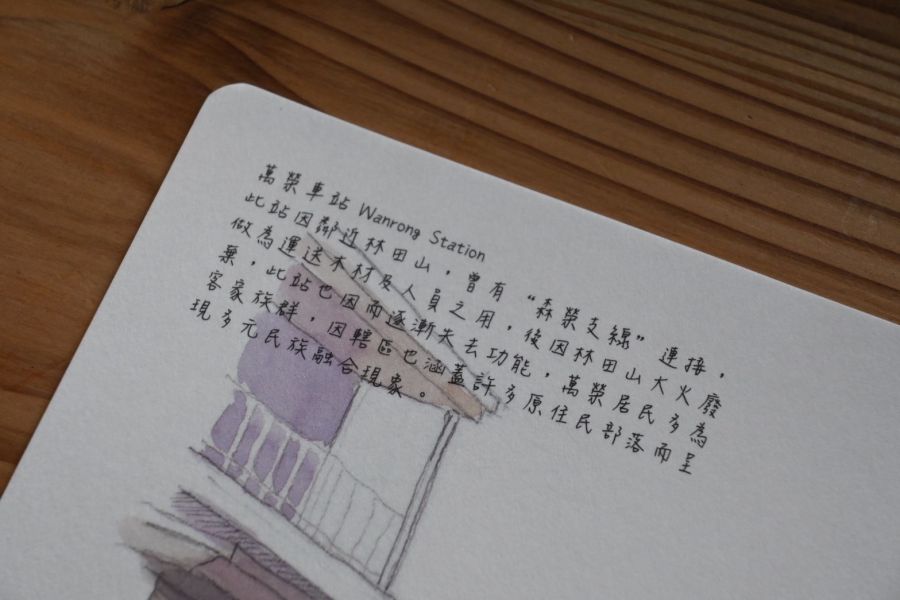 萬榮車站 Wanrong Station
此站因鄰近林田山，曾有“森榮支線”連接，
做為運送木材及人員之用，後因林田山大火廢
棄，此站也因而逐漸失去功能，萬榮居民多為
客家族群，因轄區也涵蓋許多原住民部落而呈
現多元民族融合現象。